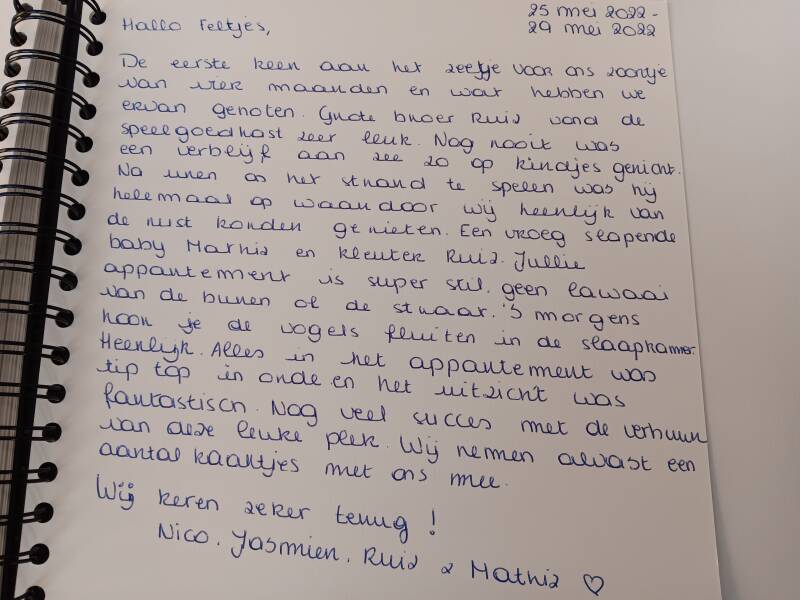 25 mei 2022 -
29 mei 2022
Hallo Feltjes,
De eerste keer aan het zeetje voor ons zoontje
van vier maanden en wat hebben we
ervan genoten. Grote broer Ruiz vond de
speelgoedkast zeer leuk. Nog nooit was
een verblijf aan zee zo op kindjes gericht.
Na uren op het strand te spelen was hij
helemaal op waardoor wij heerlijk van
de rust konden genieten. Een vroeg slapende
baby Mathiz en kleuter Ruiz. Jullie
appartement is super stil, geen lawaai
van de buren of de straat. 's morgens
hoor je de vogels fluiten in de slaapkamer.
Heerlijk. Alles in het appartement was
tip top in orde en het uitzicht was
fantastisch. Nog veel succes met de verhuur
van deze leuke plek. Wij nemen alvast een
aantal kaartjes met ons mee.
Wij keren zeker terug!
Nico, Yasmien, Ruiz & Mathiz ♡